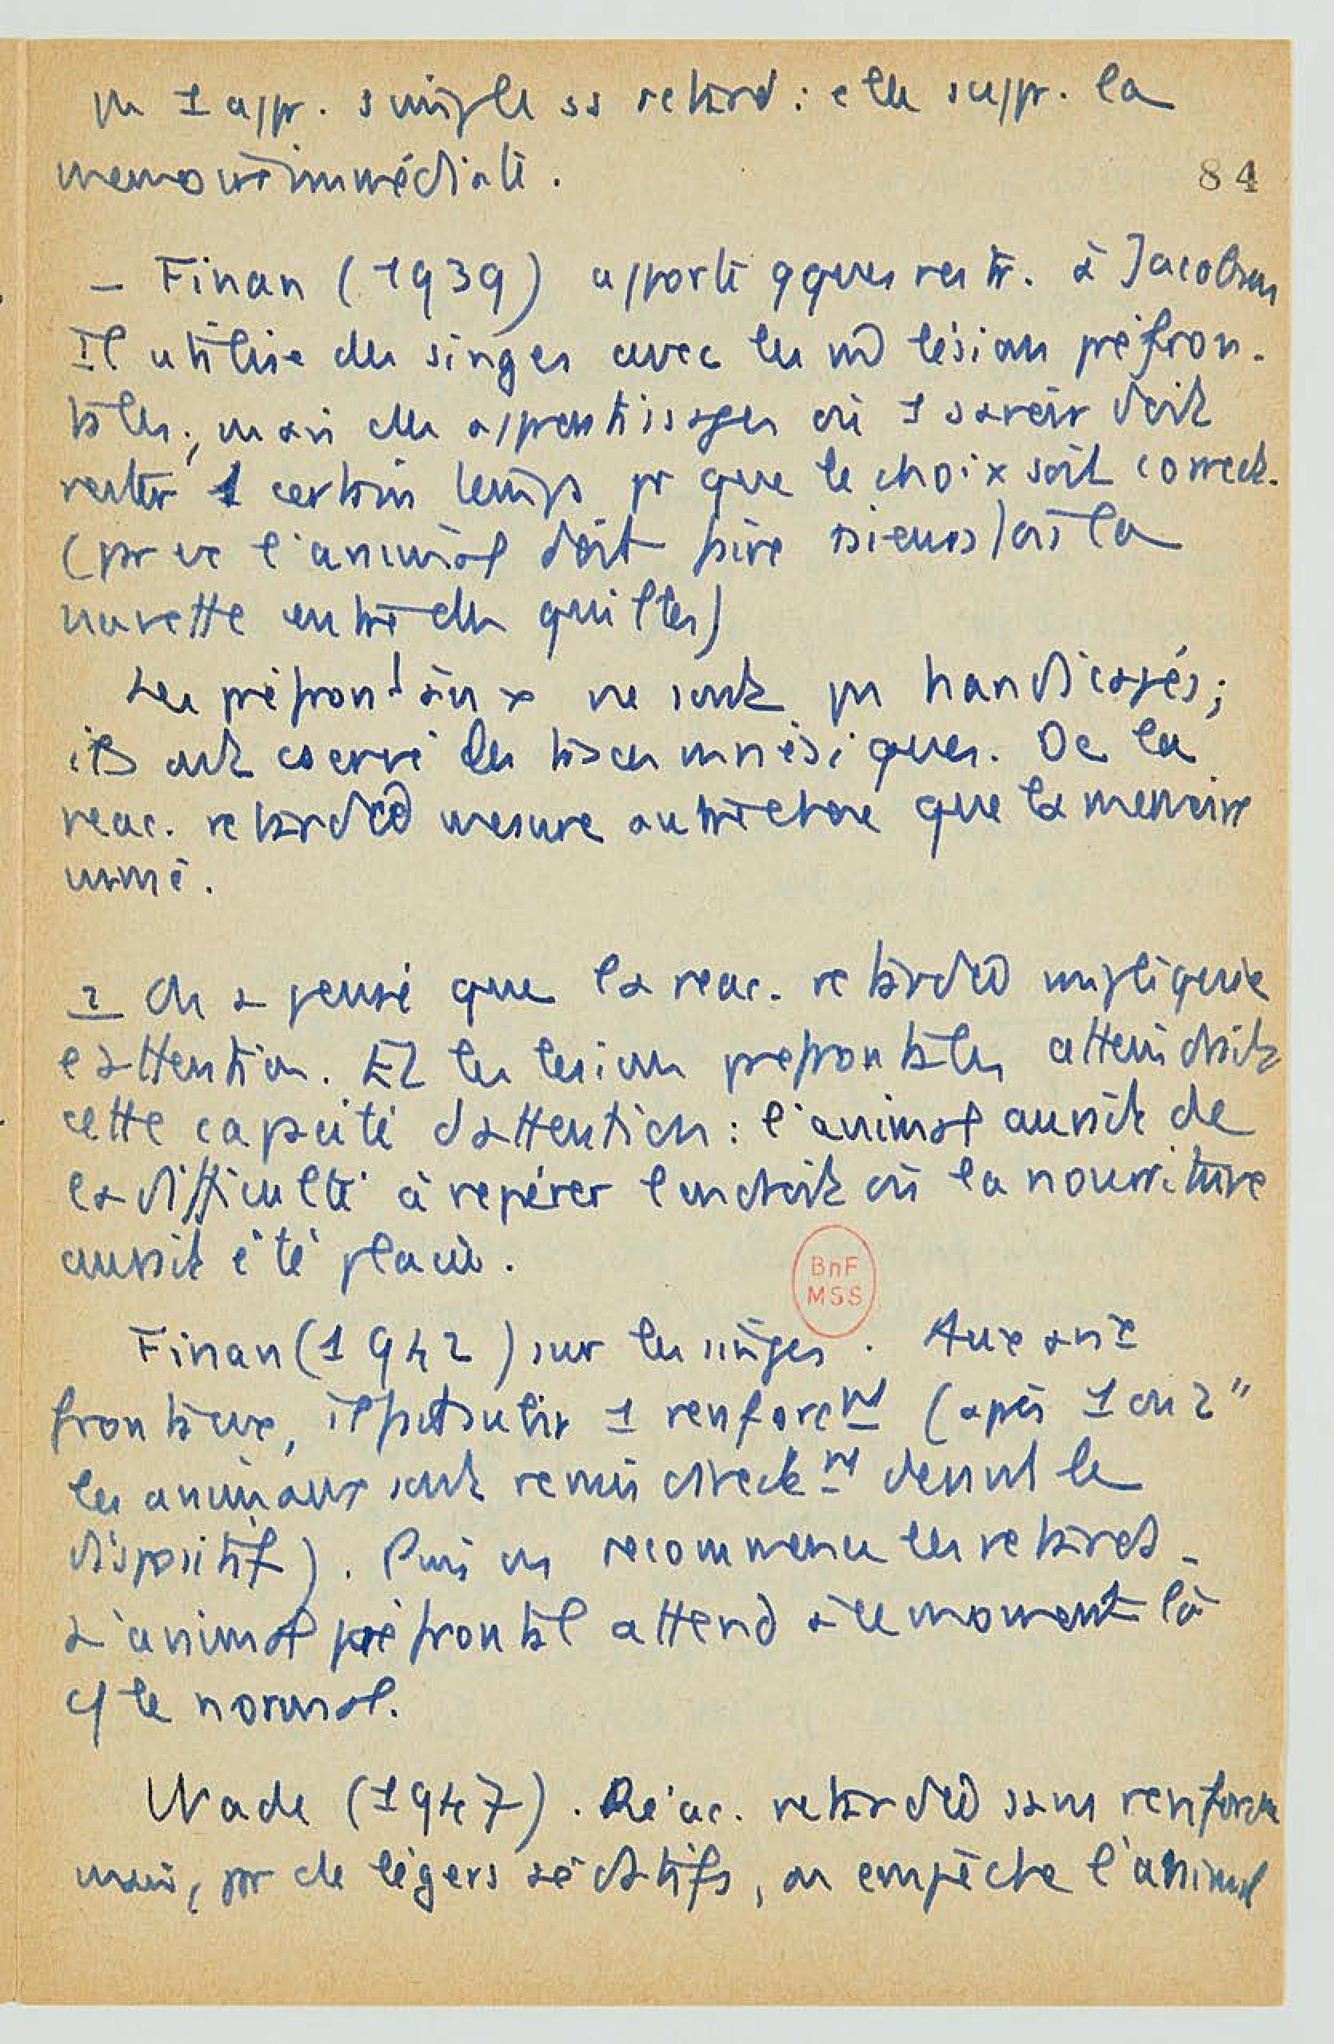 pr 1 appr. simple ss retard : elle suppr. la
memoire immédiate.
84
– Finan (1939) apporte qques restr. à Jacobsen
Il utilise des singes avec les m̂ lésions préfron-
tales ; mais des apprentissages où 1 savoir doit
rester 1 certain temps pr que le choix soit correct.
(pr ce l'animal doit faire fois la
navette entre des quilles)
Les préfrontaux ne sont pas handicapés ;
ils ont cservé les traces mnésiques. Dc la
reac. retardée mesure autre chose que la memoire
imme.
2 On a pensé que la reac. retardée impliquait
l'attention. Et les lesions prefrontales atteindraient
cette capacité d'attention : l'animal aurait de
la difficulté à repérer l'endroit où la nourriture
aurait été placée.
Finan (1942) sur les singes. Aux anx
BnF
MSS
frontaux, il fait subir 1 renforcnt (après 1 ou 2"
les animaux sont remis directnt devant le
dispositif). Puis on recommence les retards.
L'animal préfrontal attend à ce moment là
c/ le normal.
Wade (1947). Réac. retardée sans renforce
mais, par de légers sédatifs, on empêche l'animal